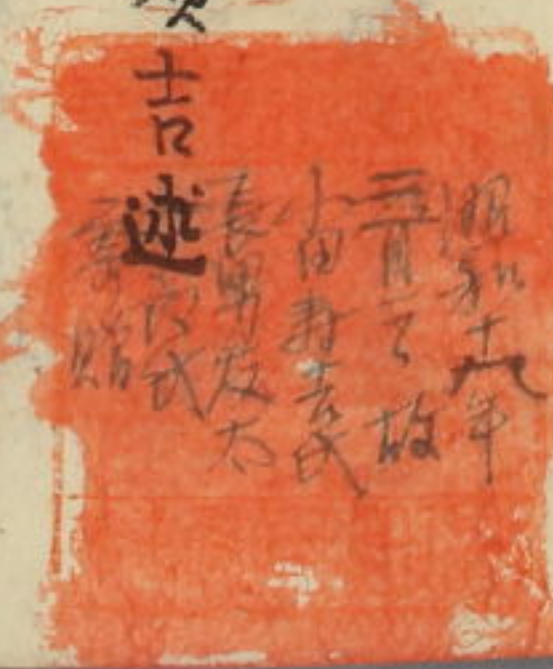 昭和十九年
三月 故
小田寿吉氏
長男 太
郎氏
寄贈
吉述